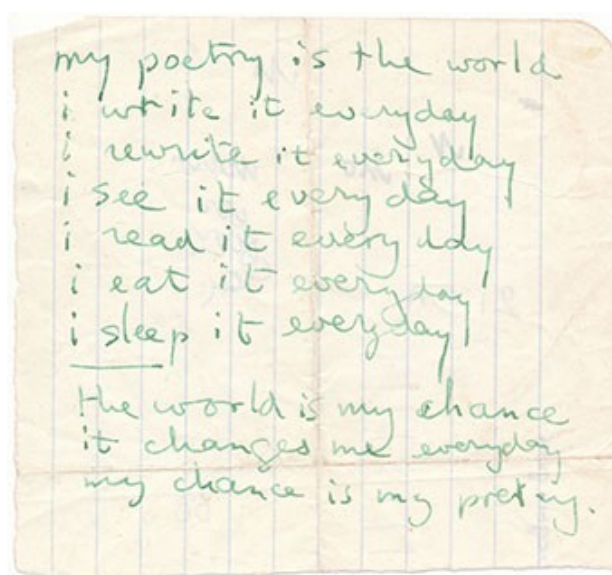 my poetry is the world
i write it everyday
i rewrite it everyday
i see it everyday
i read it every day
i eat it everyday
i sleep it everyday
the world is my chance
it changes me everyday
my chance is my poetry.